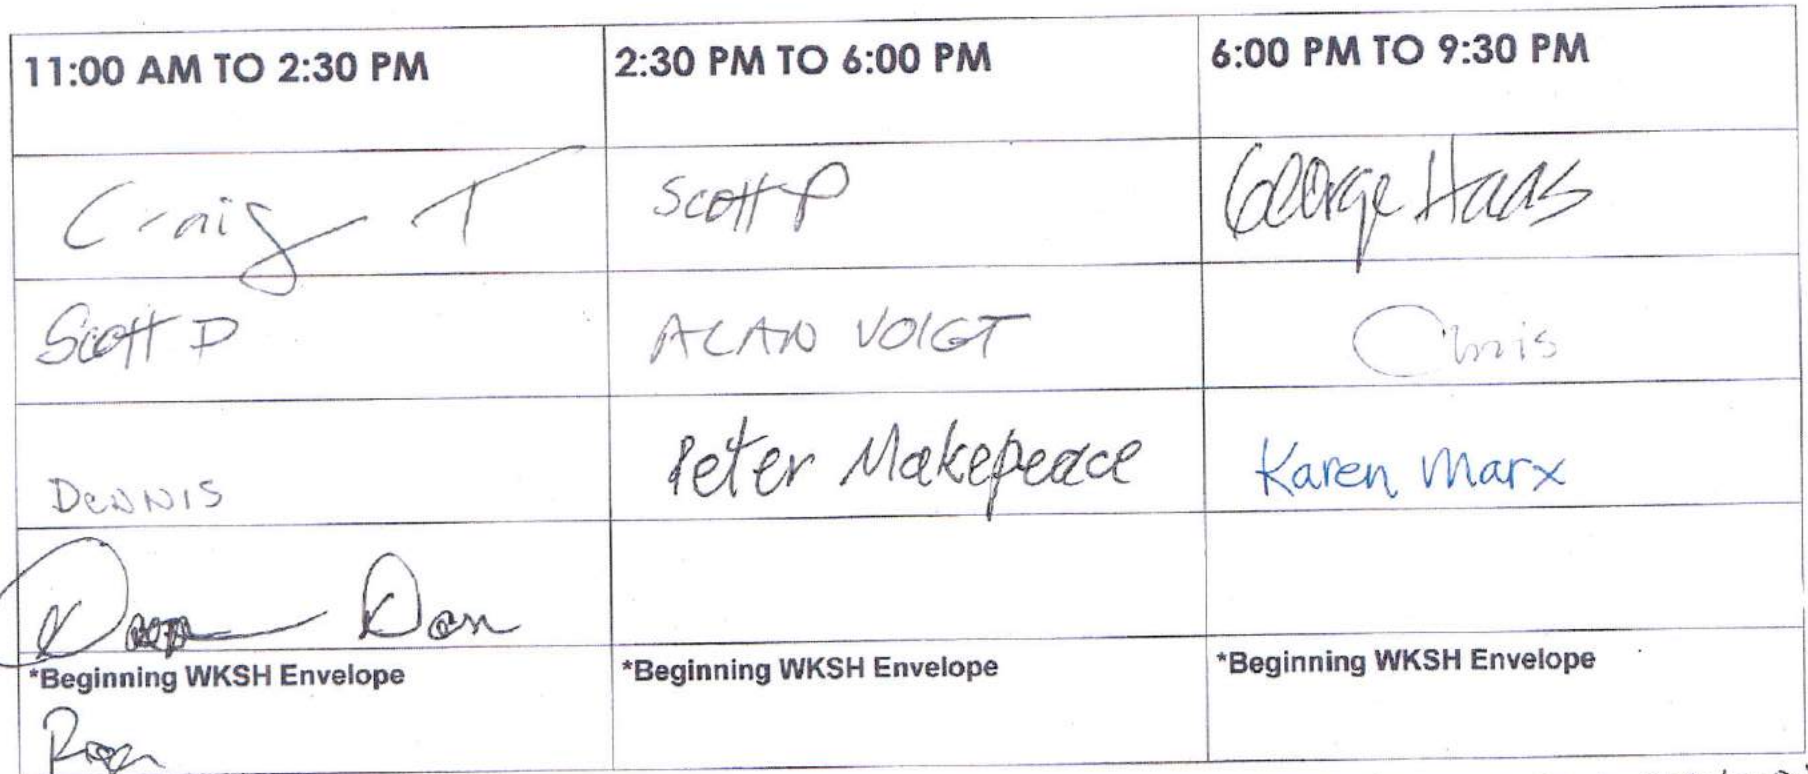 11:00 AM TO 2:30 PM 2:30 PM TO 6:00 PM 6:00 PM TO 9:30 PM
Craig T Scott P George Haas
Scott D ALAN VOIGT Chris
DENNIS Peter Makepeace Karen Marx
Dan
*Beginning WKSH Envelope *Beginning WKSH Envelope *Beginning WKSH Envelope